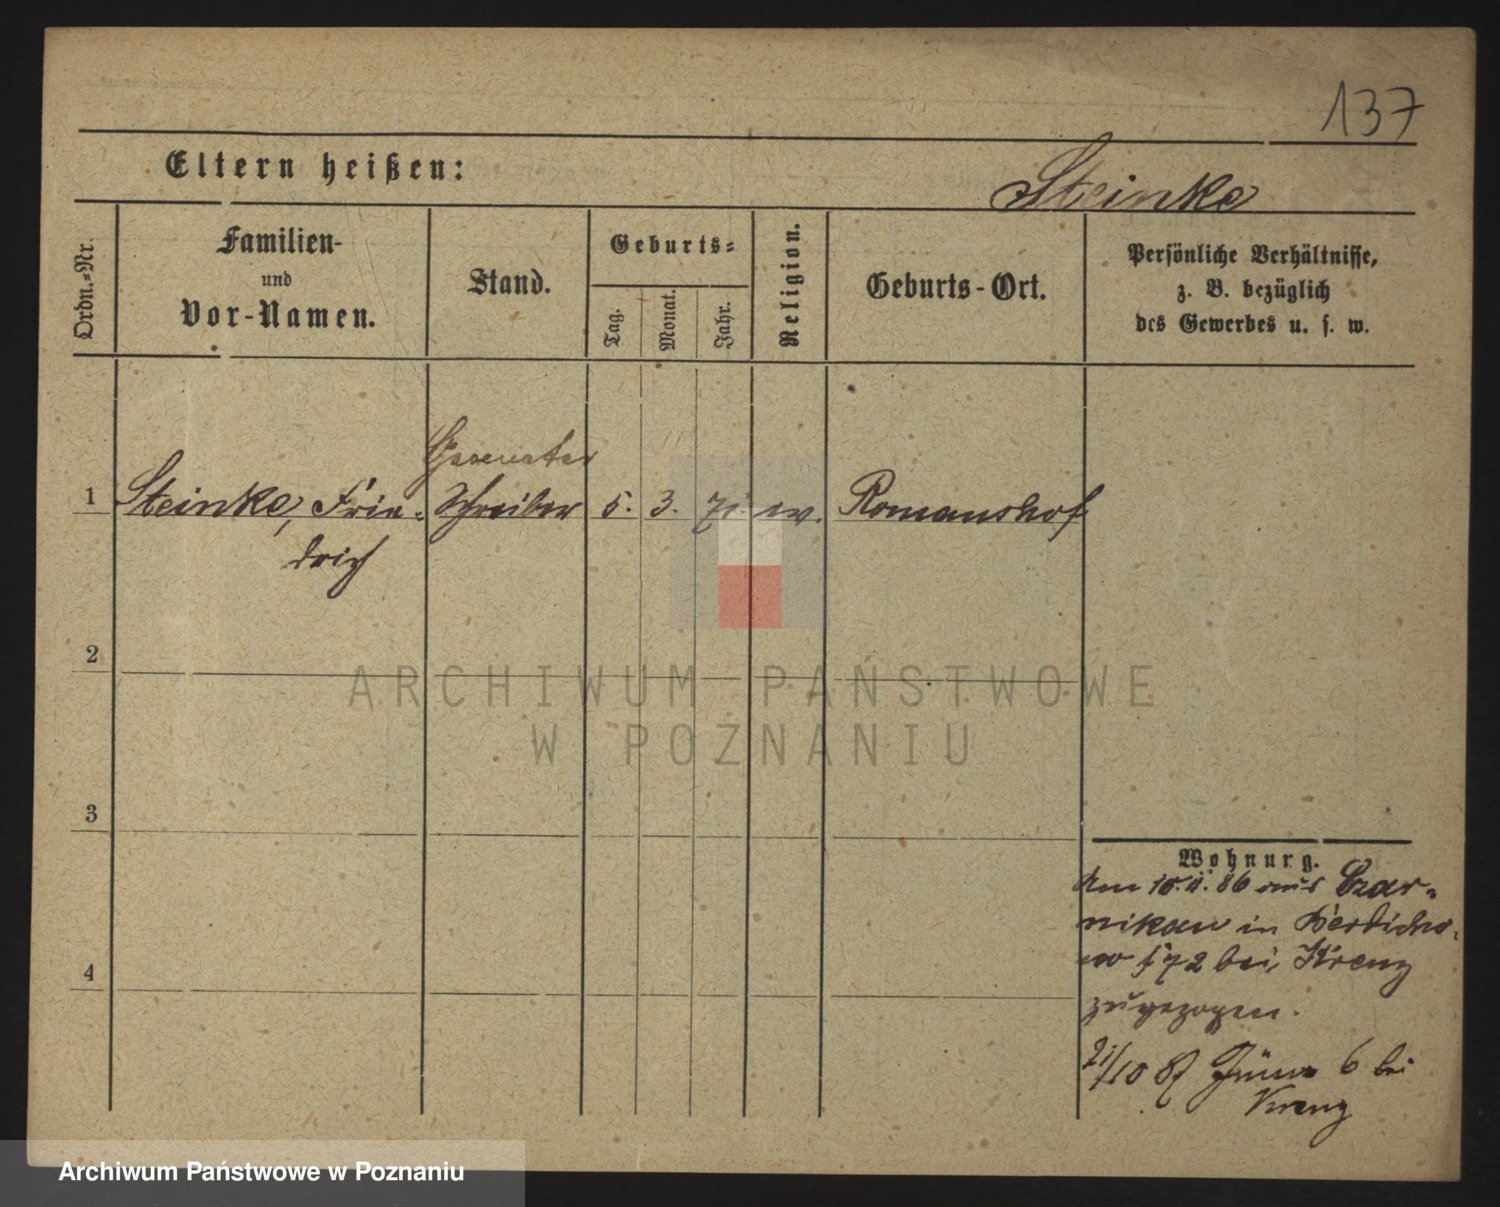 137
Eltern heißen:
Steinke
Ordn.-Nr.
Familien-
und
Vor-Namen.
Stand.
Geburts-
Tag.
Monat.
Jahr.
Religion.
Geburts-Ort.
Persönliche Verhältnisse,
z. B. bezüglich
des Gewerbes u. s. w.
1
Steinke, Frie-
drich
Schreiber
5.
3.
71.
ev.
Romanshof
2
ARCHIWUM PAŃSTWOWE
W POZNANIU
3
Wohnurg.
Am 10. 86 aus Czar-
nikau in
72 bei Krenz
zugezogen.
21/10 87 6 bei
Krenz
4
Archiwum Państwowe w Poznaniu